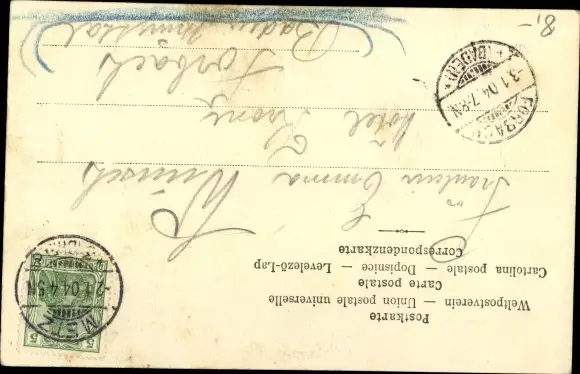 Postkarte
Weltpostverein — Union postale universelle
Carte postale
Cartolina postale — Dopisnice — Levelező-Lap
Correspondenzkarte
Fräulein Emma Wünsch
Hotel Krone
Forbach
Baden Murgthal
8,-
FORBACH
-3.1.04.7-8N
* (BADEN) *
METZ
-2.1.04.4-5N
5 5